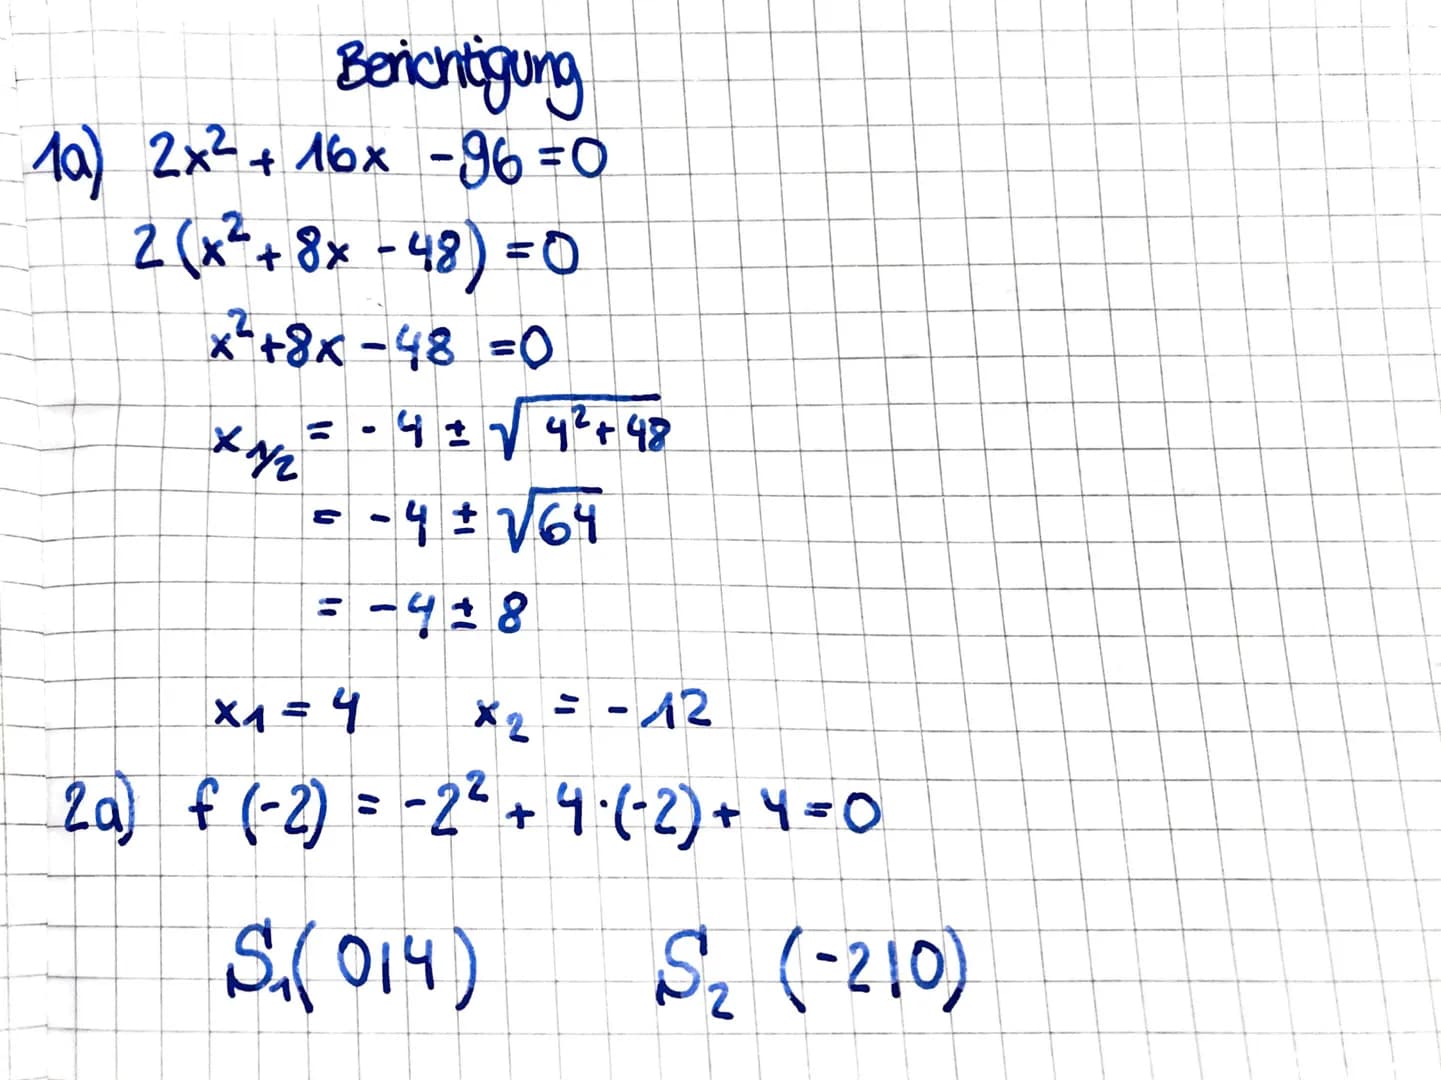 Berichtigung
1a) 2x² + 16x - 96 = 0
2 (x² + 8x - 48) = 0
x² + 8x - 48 = 0
x₁/₂ = - 4 ± √(4² + 48)
= - 4 ± √64
= - 4 ± 8
x₁ = 4 x₂ = - 12
2a) f (-2) = -2² + 4·(-2) + 4 = 0
S₁( 0|4 ) S₂ (-2|0)